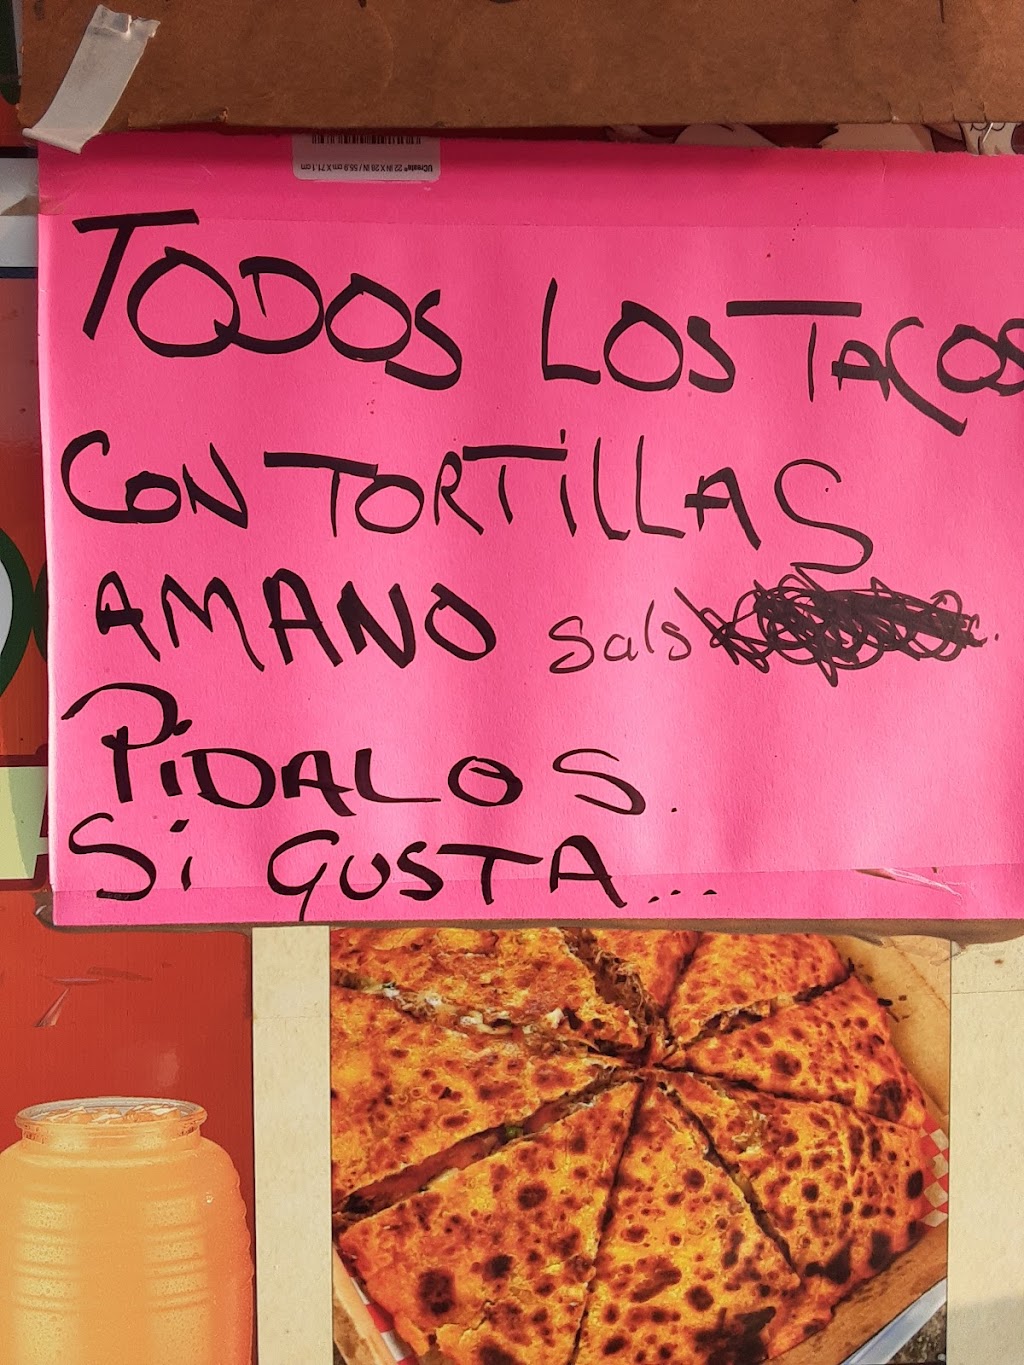 UCreate® 22 IN X 28 IN / 55.9 cm X 71.1 cm
TODOS LOS TACOS
CON TORTiLLAS
AMANO Sals
PiDALOS.
Si GUSTA...